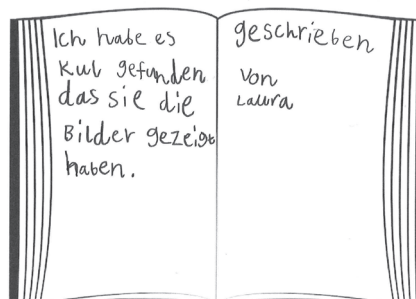 Ich habe es
Kul gefunden
das sie die
Bilder gezeigt
haben.
geschrieben
von
Laura